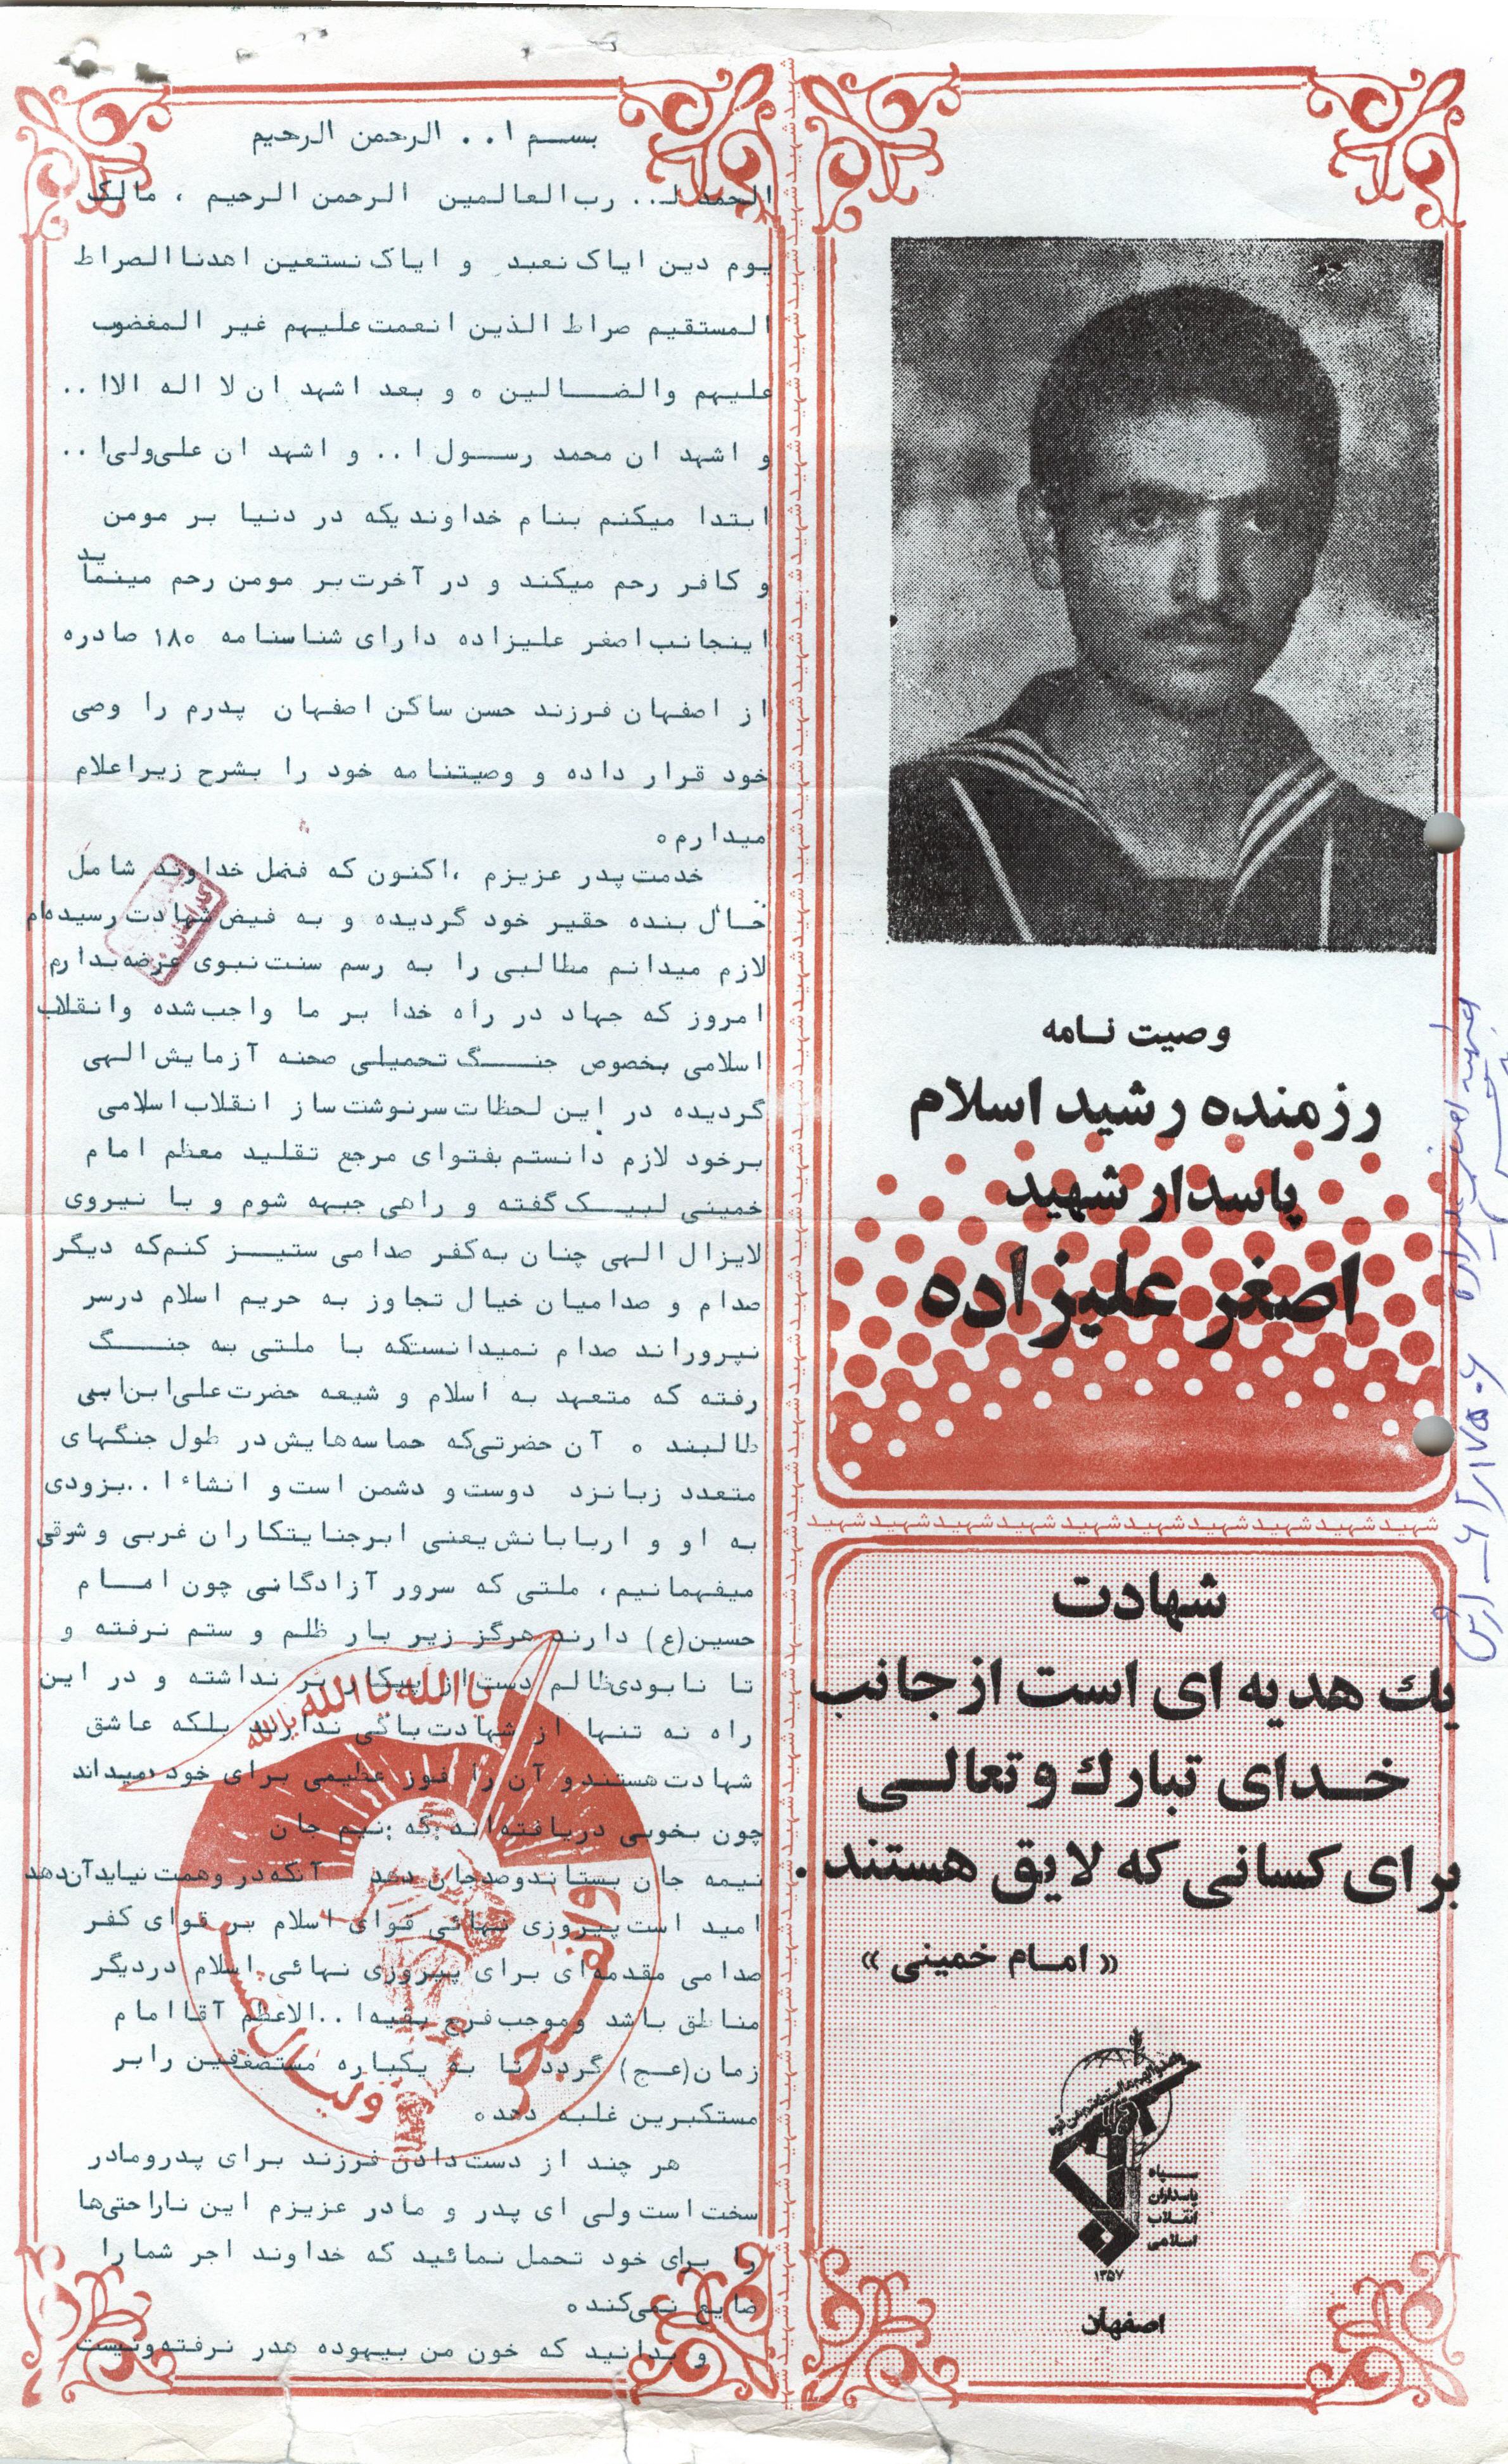 وصیت نامه
رزمنده رشید اسلام
پاسدار شهید
اصغر علیزاده
شهید شهید شهید شهید شهید شهید شهید شهید شهید شهید
شهادت
یك هدیه ای است از جانب
خدای تبارك و تعالی
برای کسانی که لایق هستند .
« امام خمینی »
سپاه
پاسداران
انقلاب
اسلامی
۱۳۵۷
اصفهان
بسم ا . . الرحمن الرحیم
الحمد لـ . . رب العالمین الرحمن الرحیم ، مالک
یوم دین ایاک نعبد و ایاک نستعین اهدنا الصراط
المستقیم صراط الذین انعمت علیهم غیر المغضوب
علیهم والضالین ه و بعد اشهد ان لا اله الا ا . .
و اشهد ان محمد رسول ا . . و اشهد ان علی ولی ا . .
ابتدا میکنم بنام خداوندیکه در دنیا بر مومن
و کافر رحم میکند و در آخرت بر مومن رحم مینماید
اینجانب اصغر علیزاده دارای شناسنامه ۱۸۰ صادره
از اصفهان فرزند حسن ساکن اصفهان پدرم را وصی
خود قرار داده و وصیتنامه خود را بشرح زیر اعلام
میدارم ه
خدمت پدر عزیزم ، اکنون که فضل خداوند شامل
حال بنده حقیر خود گردیده و به فیض شهادت رسیده‌ام
لازم میدانم مطالبی را به رسم سنت نبوی عرضه بدارم
امروز که جهاد در راه خدا بر ما واجب شده و انقلاب
اسلامی بخصوص جنگ تحمیلی صحنه آزمایش الهی
گردیده در این لحظات سرنوشت ساز انقلاب اسلامی
برخود لازم دانستم بفتوای مرجع تقلید معظم امام
خمینی لبیک گفته و راهی جبهه شوم و با نیروی
لایزال الهی چنان به کفر صدامی ستیز کنم که دیگر
صدام و صدامیان خیال تجاوز به حریم اسلام درسر
نپروراند صدام نمیدانست که با ملتی به جنگ
رفته که متعهد به اسلام و شیعه حضرت علی ابن ابی
طالبند ه آن حضرتی که حماسه‌هایش در طول جنگهای
متعدد زبانزد دوست و دشمن است و انشاء ا . . بزودی
به او و اربابانش یعنی ابرجنایتکاران غربی و شرقی
میفهمانیم ، ملتی که سرور آزادگانی چون امام
حسین (ع) دارند هرگز زیر بار ظلم و ستم نرفته و
تا نابودی ظالم دست از پیکار بر نداشته و در این
راه نه تنها از شهادت باکی ندارند بلکه عاشق
شهادت هستند و آن را فوز عظیمی برای خود میداند
چون بخوبی دریافته‌اند که : نیم جان
نیمه جان بستاند و صد جان دهد آنکه در وهمت نیاید آن دهد
امید است پیروزی نهائی قوای اسلام بر قوای کفر
صدامی مقدمه‌ای برای پیروزی نهائی اسلام دردیگر
مناطق باشد و موجب فرج بقیه ا . . الاعظم آقا امام
زمان (عج) گردد تا به یکباره مستضعفین را بر
مستکبرین غلبه دهد ه
هر چند از دست دادن فرزند برای پدر و مادر
سخت است ولی ای پدر و مادر عزیزم این ناراحتی‌ها
را برای خود تحمل نمائید که خداوند اجر شما را
ضایع نمی‌کند ه
و بدانید که خون من بیهوده هدر نرفته و نیست
یا الله یا الله یا الله
والفجر
ولیال عشر